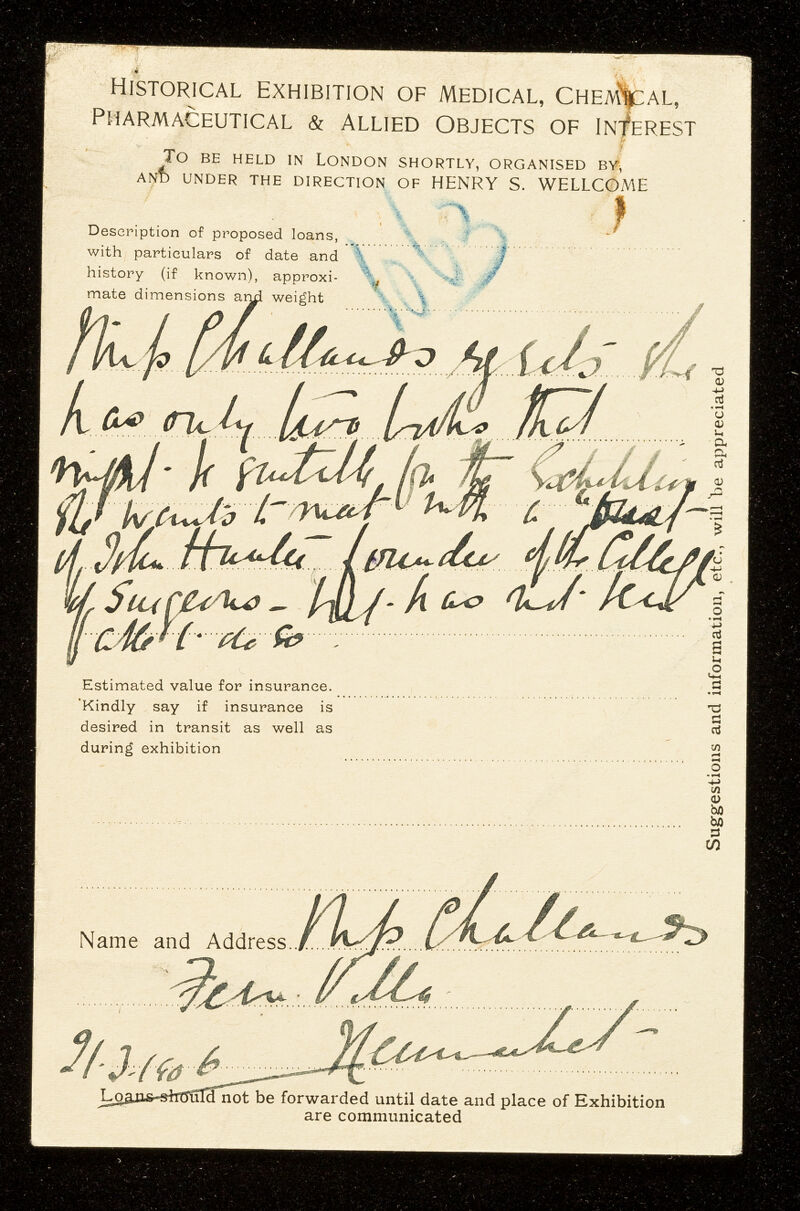 HISTORICAL EXHIBITION OF MEDICAL, CHEMICAL,
PHARMACEUTICAL & ALLIED OBJECTS OF INTEREST
TO BE HELD IN LONDON SHORTLY, ORGANISED BY,
AND UNDER THE DIRECTION OF HENRY S. WELLCOME
1063
Description of proposed loans,
with particulars of date and
history (if known), approxi-
mate dimensions and weight
Miss Challands regrets she
has only two books that
might be suitable for the Exhibition
She wants to meet with a "bust"
of John Hunter founder of the College
of Surgeons - but has not been
able to do so.
Estimated value for insurance.
Kindly say if insurance is
desired in transit as well as
during exhibition
Suggestions and information, etc., will be appreciated
Name and Address Miss Challands
Fern Villa
21.3.1906 Newmarket
Loans should not be forwarded until date and place of Exhibition
are communicated